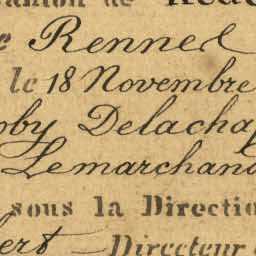 canton de
Rennes
le 18 Novembre
Delacha
Lemarchand
sous la Directio
bert – Directeur